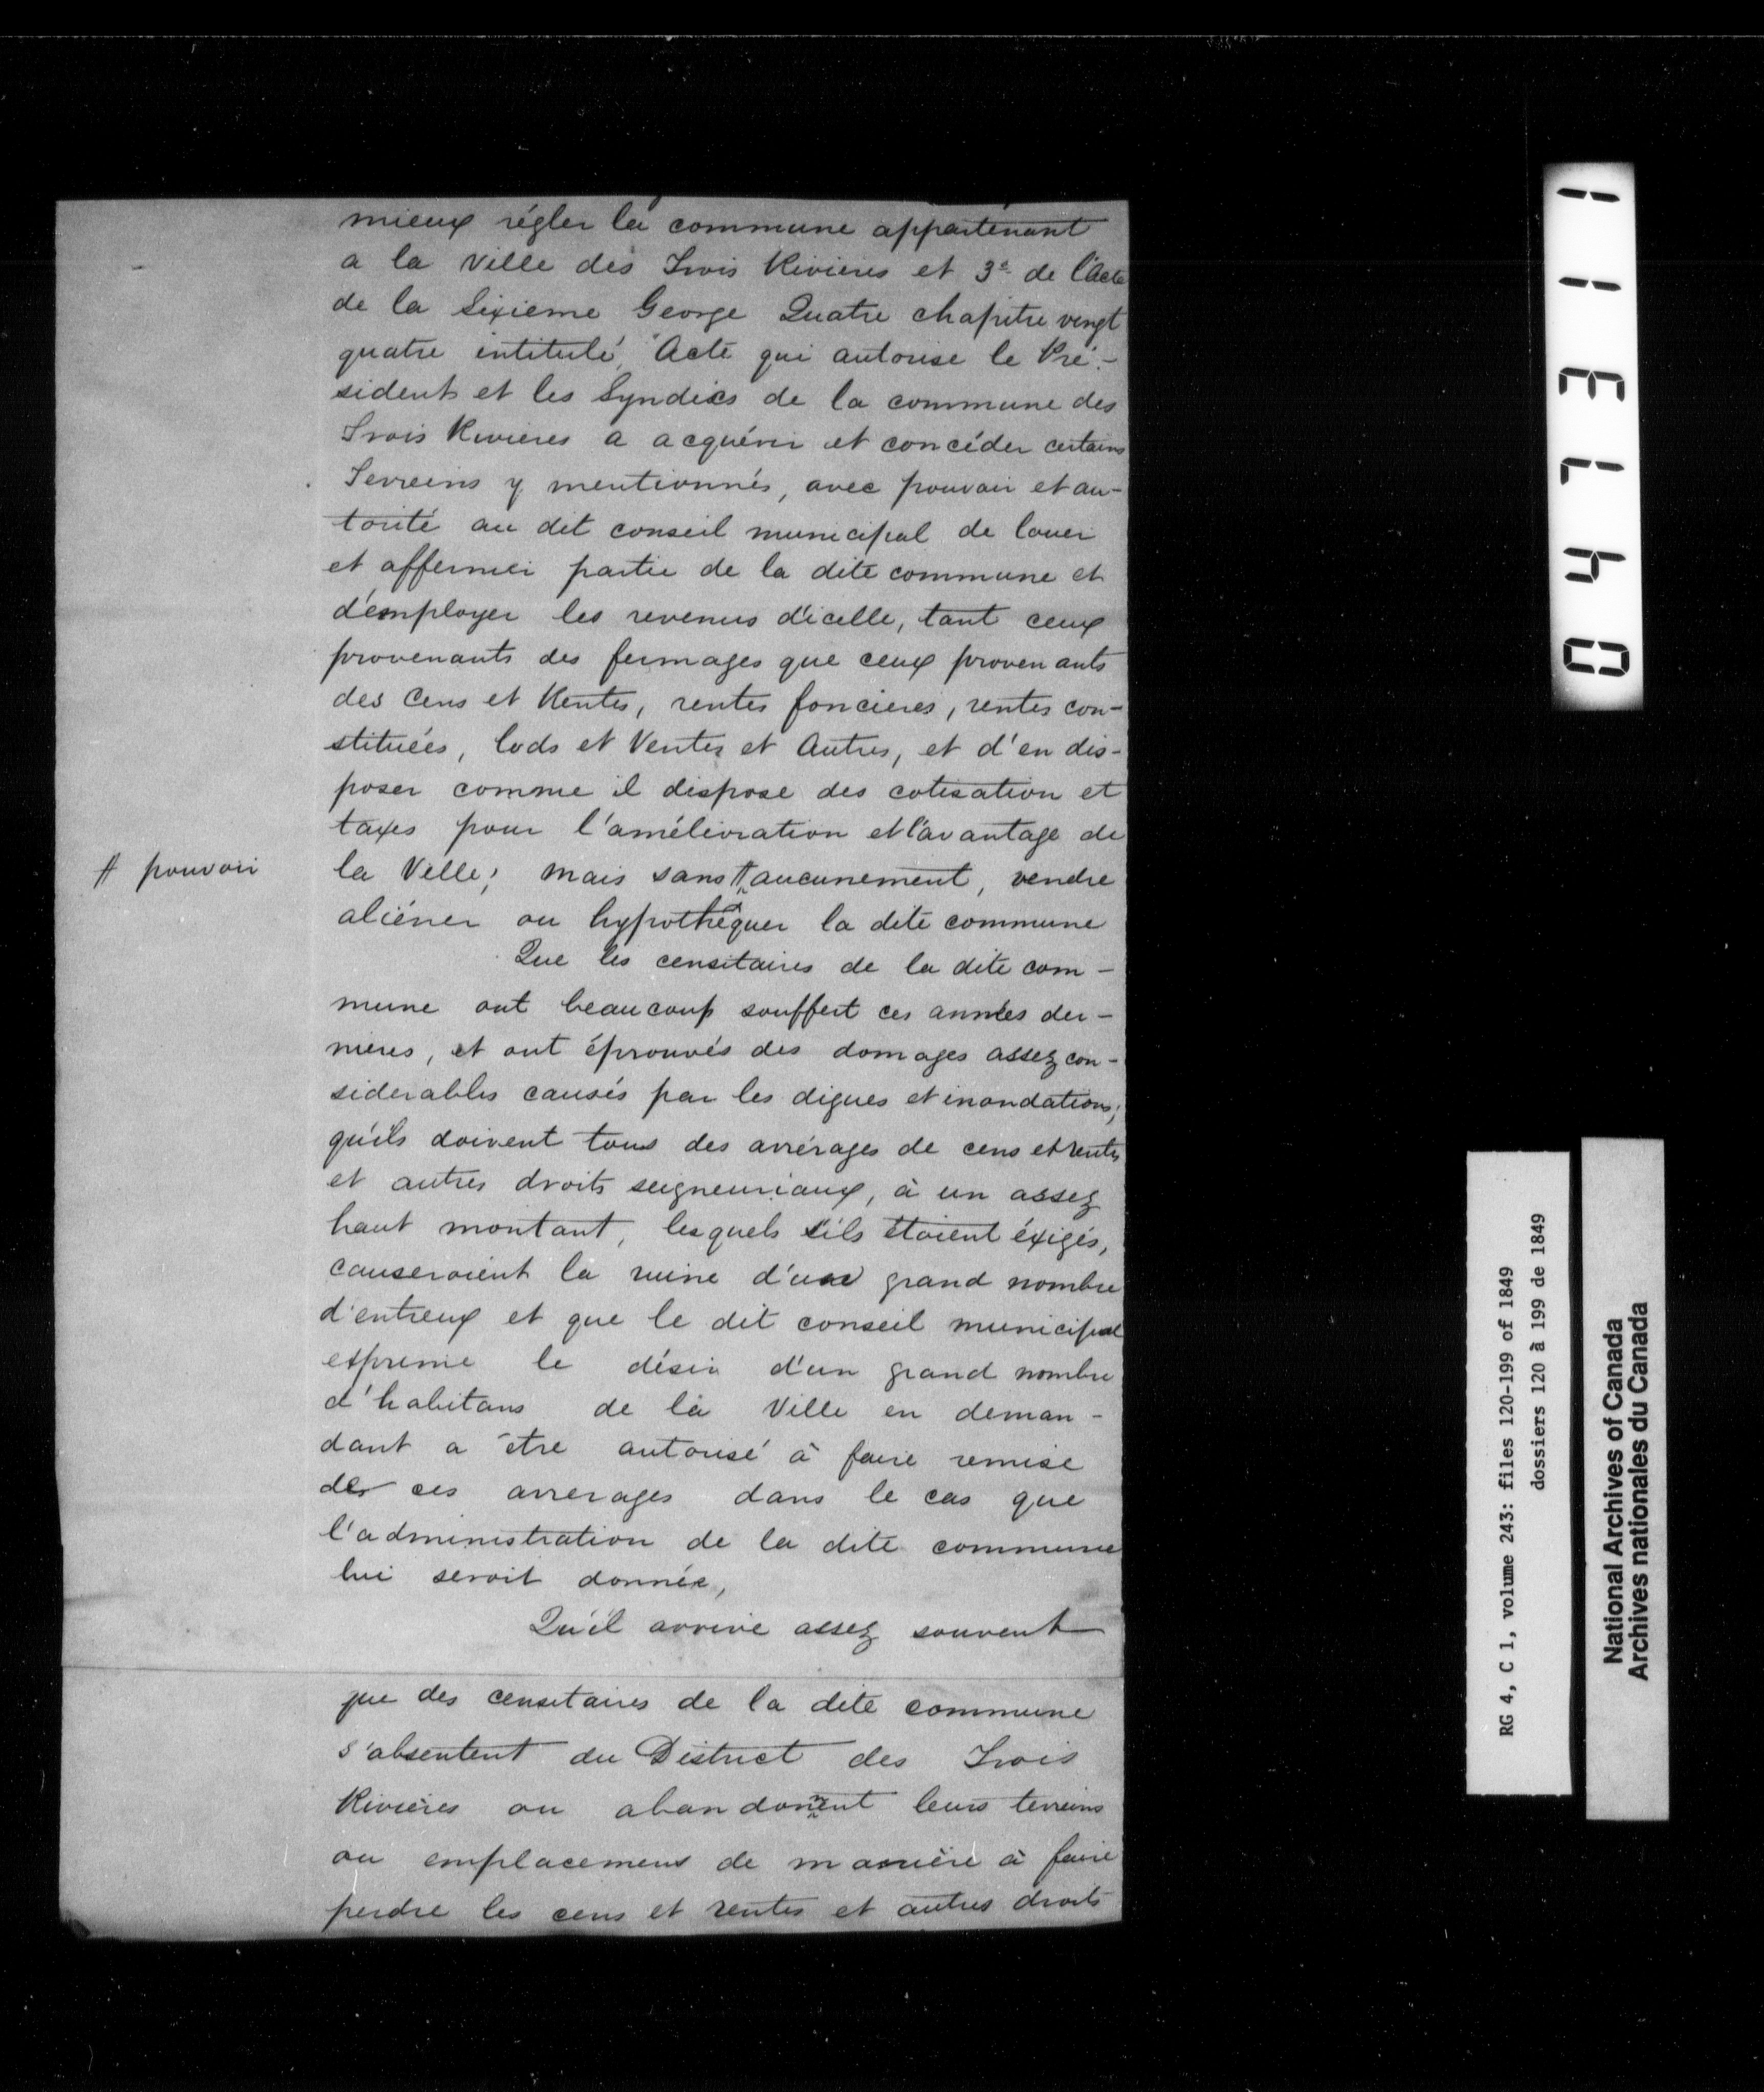 mieux régler la commune appartenant
a la Ville des Trois Rivieres et 3e de l'Acte
de la Sixieme George Quatre chapitre vingt
quatre intitulé, "Acte qui autorise le Pré-
sident et les Syndics de la commune des
Trois Rivieres a acquérir et concéder certains
Terreins y mentionnés, avec pouvoir et au-
torité au dit conseil municipal de louer
et affermer partie de la dite commune et
d'employer les revenus d'icelle, tant ceux
provenants des fermages que ceux provenants
des Cens et Rentes, rentes foncieres, rentes con-
stituées, lods et Ventes et Autres, et d'en dis-
poser comme il dispose des cotisation et
taxes pour l'amélioration et l'avantage de
# pouvoir
la Ville; mais sans # aucunement, vendre
aliéner ou hypothéquer la dite commune
Que les censitaires de la dite com-
mune ont beaucoup souffert ces années der-
nieres, et ont éprouvés des domages assez con-
siderables causés par les digues et inondations;
qu'ils doivent tous des arrérages de cens et rentes
et autres droits seigneuriaux, à un assez
haut montant, lesquels s'ils étoient éxigés,
causeroient la ruine d'un grand nombre
d'entreux et que le dit conseil municipal
exprime le désir d'un grand nombre
d'habitans de la Ville en deman-
dant a être autorisé à faire remise
de ces arrerages dans le cas que
l'administration de la dite commune
lui seroit donnée,
Qu'il arrive assez souvent
que des censitaires de la dite commune
s'absentent du District des Trois
Rivières ou abandonnent leurs terreins
ou emplacemens de manière à faire
perdre les cens et rentes et autres droits
047311
RG 4, C 1, volume 243: files 120-199 of 1849
dossiers 120 à 199 de 1849
National Archives of Canada
Archives nationales du Canada